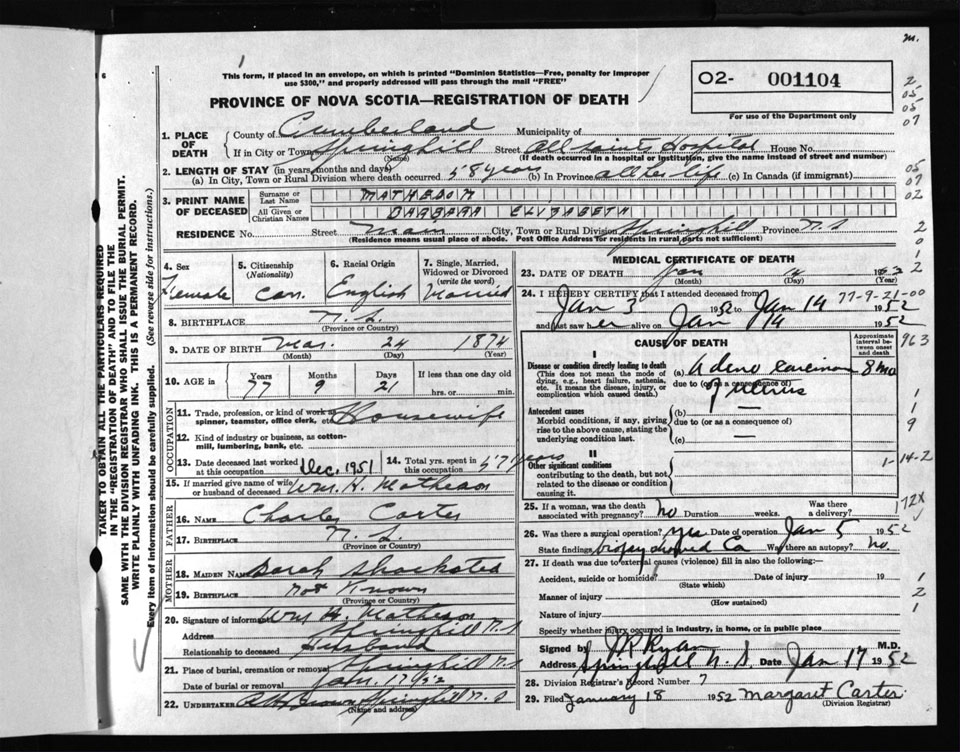 m.
This form, if placed in an envelope, on which is printed "Dominion Statistics—Free, penalty for improper
use $300," and properly addressed will pass through the mail "FREE"
02- 001104
PROVINCE OF NOVA SCOTIA—REGISTRATION OF DEATH
For use of the Department only
1. PLACE OF DEATH
County of Cumberland Municipality of
If in City or Town Springhill Street All Saints Hospital House No.
(Name) (If death occurred in a hospital or institution, give the name instead of street and number)
2. LENGTH OF STAY (in years, months and days)
(a) In City, Town or Rural Division where death occurred 58 years (b) In Province all her life (c) In Canada (if immigrant)
3. PRINT NAME OF DECEASED
Surname or Last Name MATHESON
All Given or Christian Names BARBARA ELIZABETH
RESIDENCE No. Street Main City, Town or Rural Division Springhill Province N.S
(Residence means usual place of abode. Post Office Address for residents in rural parts not sufficient)
4. Sex Female
5. Citizenship (Nationality) Can.
6. Racial Origin English
7. Single, Married, Widowed or Divorced (write the word) Married
8. BIRTHPLACE N.S.
(Province or Country)
9. DATE OF BIRTH Mar. 24 1874
(Month) (Day) (Year)
10. AGE in Years 77 Months 9 Days 21 If less than one day old
hrs. or min.
OCCUPATION
11. Trade, profession, or kind of work as spinner, teamster, office clerk, etc. Housewife
12. Kind of industry or business, as cotton-mill, lumbering, bank, etc.
13. Date deceased last worked at this occupation Dec. 1951
14. Total yrs. spent in this occupation 57 years
15. If married give name of wife or husband of deceased Wm. H. Matheson
FATHER
16. NAME Charles Carter
17. BIRTHPLACE N.S.
(Province or Country)
MOTHER
18. MAIDEN NAME Sarah
19. BIRTHPLACE Not Known
(Province or Country)
20. Signature of informant Wm H. Matheson
Address Springhill N.S
Relationship to deceased Husband
21. Place of burial, cremation or removal Springhill N.S
Date of burial or removal Jan. 17/52
22. UNDERTAKER Brown Springhill N.S
(Name and address)
MEDICAL CERTIFICATE OF DEATH
23. DATE OF DEATH Jan 14 1952
(Month) (Day) (Year)
24. I HEREBY CERTIFY that I attended deceased from
Jan 3 1952 to Jan 14 1952
77-9-21-00
and last saw her alive on Jan 14 1952
CAUSE OF DEATH
Approximate interval between onset and death
I
Disease or condition directly leading to death (a) Adeno carcinoma 8 mo
(This does not mean the mode of dying, e.g., heart failure, asthenia, etc. It means the disease, injury, or complication which caused death.)
due to (or as a consequence of) of uterus
Antecedent causes (b) —
Morbid conditions, if any, giving rise to the above cause, stating the underlying condition last.
due to (or as a consequence of)
(c) —
II
Other significant conditions
contributing to the death, but not related to the disease or condition causing it.
1-14-2
25. If a woman, was the death associated with pregnancy? No Duration weeks. Was there a delivery?
172X
26. Was there a surgical operation? yes Date of operation Jan 5 1952
State findings biopsy showed Ca Was there an autopsy? No.
27. If death was due to external causes (violence) fill in also the following:—
Accident, suicide or homicide? Date of injury 19
(State which)
Manner of injury
(How sustained)
Nature of injury
Specify whether injury occurred in industry, in home, or in public place
Signed by Ryan M.D.
Address Springhill N.S. Date Jan 17 1952
28. Division Registrar's Record Number 7
29. Filed January 18 1952 Margaret Carter
(Division Registrar)
2
05
05
07
05
07
02
2
0
1
2
963
1
1
9
1
2
1
TAKER TO OBTAIN ALL THE PARTICULARS REQUIRED
IN THE "REGISTRATION OF DEATH" AND TO FILE THE
SAME WITH THE DIVISION REGISTRAR WHO SHALL ISSUE THE BURIAL PERMIT.
WRITE PLAINLY WITH UNFADING INK. THIS IS A PERMANENT RECORD.
Every item of information should be carefully supplied. (See reverse side for instructions.)